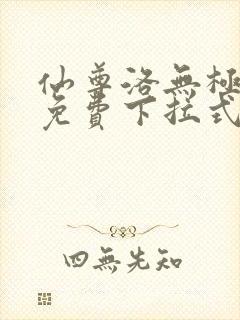 仙尊洛無極
免費下拉式
四無先知